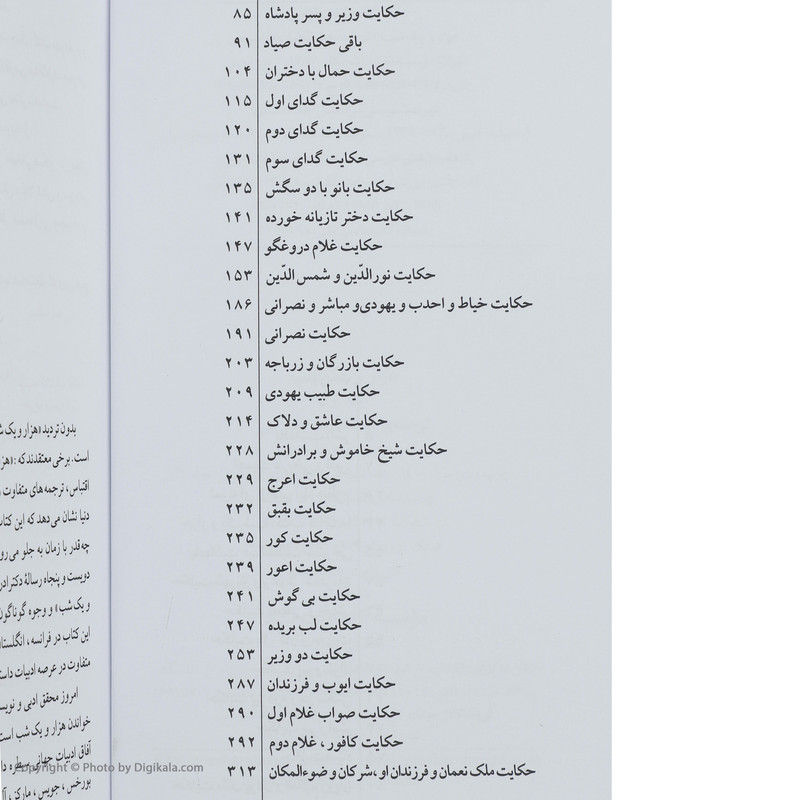 حکایت وزیر و پسر پادشاه ۸۵
باقی حکایت صیاد ۹۱
حکایت حمال با دختران ۱۰۴
حکایت گدای اول ۱۱۵
حکایت گدای دوم ۱۲۰
حکایت گدای سوم ۱۳۱
حکایت بانو با دو سگش ۱۳۵
حکایت دختر تازیانه خورده ۱۴۱
حکایت غلام دروغگو ۱۴۷
حکایت نورالدّین و شمس الدّین ۱۵۳
حکایت خیاط و احدب و یهودی‌و مباشر و نصرانی ۱۸۶
حکایت نصرانی ۱۹۱
حکایت بازرگان و زرباجه ۲۰۳
حکایت طبیب یهودی ۲۰۹
حکایت عاشق و دلاک ۲۱۴
حکایت شیخ خاموش و برادرانش ۲۲۸
حکایت اعرج ۲۲۹
حکایت بقبق ۲۳۲
حکایت کور ۲۳۵
حکایت اعور ۲۳۹
حکایت بی گوش ۲۴۱
حکایت لب بریده ۲۴۷
حکایت دو وزیر ۲۵۳
حکایت ایوب و فرزندان ۲۸۷
حکایت صواب غلام اول ۲۹۰
حکایت کافور ، غلام دوم ۲۹۲
حکایت ملک نعمان و فرزندان او ،شرکان و ضوءالمکان ۳۱۳
بدون تردید «هزار و یک
است. برخی معتقدند که :
اقتباس ، ترجمه‌های متفاوت
دنیا نشان می‌دهد که این
چه‌قدر با زمان به جلو
دویست و پنجاه رسالهٔ
و یک شب» و وجوه گوناگون
این کتاب در فرانسه ،
متفاوت در عرصه ادبیات
امروز محقق ادبی و
خواندن هزار و یک شب است
آفاق ادبیات جهانی سیطره
بورخس ، جویس ، مارکز ،
Copyright © Photo by Digikala.com